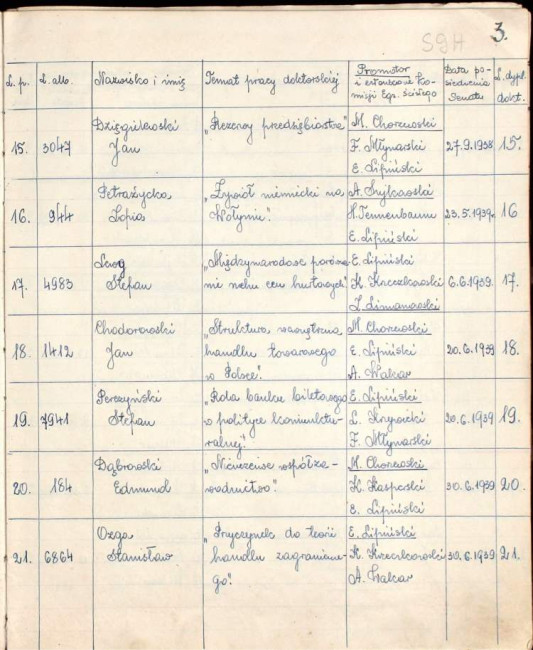 SGH 3.
L.p. L. alb. Nazwisko i imię Temat pracy doktorskiej Promotor i członkowie Komisji Egz. ścisłego Data posiedzenia Senatu L. dypl. dokt.
Dzięgielewski "Rezerwy przedsiębiorstw" M. Chorzewski
15. 3047 Jan F. Młynarski 27.9.1938 15.
E. Lipiński
Petrażycka "Żywioł niemiecki na A. Sujkowski
16. 944 Zofia Wołyniu". H. Tennenbaum 23.5.1939. 16
E. Lipiński
Stefan "Międzynarodowe E. Lipiński
17. 4983 nie ruchu cen hurtowych" K. Krzeczkowski 6.6.1939. 17.
J. Limanowski
Chodorowski "Struktura wewnętrzna M. Chorzewski
18. 1412 Jan handlu towarowego E. Lipiński 20.6.1939 18.
w Polsce". A. Wakar
Perczyński "Rola banku biletowego E. Lipiński
19. 7941 Stefan w polityce koniunktu- L. Krzywicki 20.6.1939 19.
ralnej". F. Młynarski
Dąbrowski "Nieuczciwe współza- M. Chorzewski
20. 184 Edmund wodnictwo". K. Kasperski 30.6.1939 20.
E. Lipiński
Ozga "Przyczynek do teorii E. Lipiński
21. 6864 Stanisław handlu zagranicznego- K. Krzeczkowski 30.6.1939 21.
go". A. Wakar